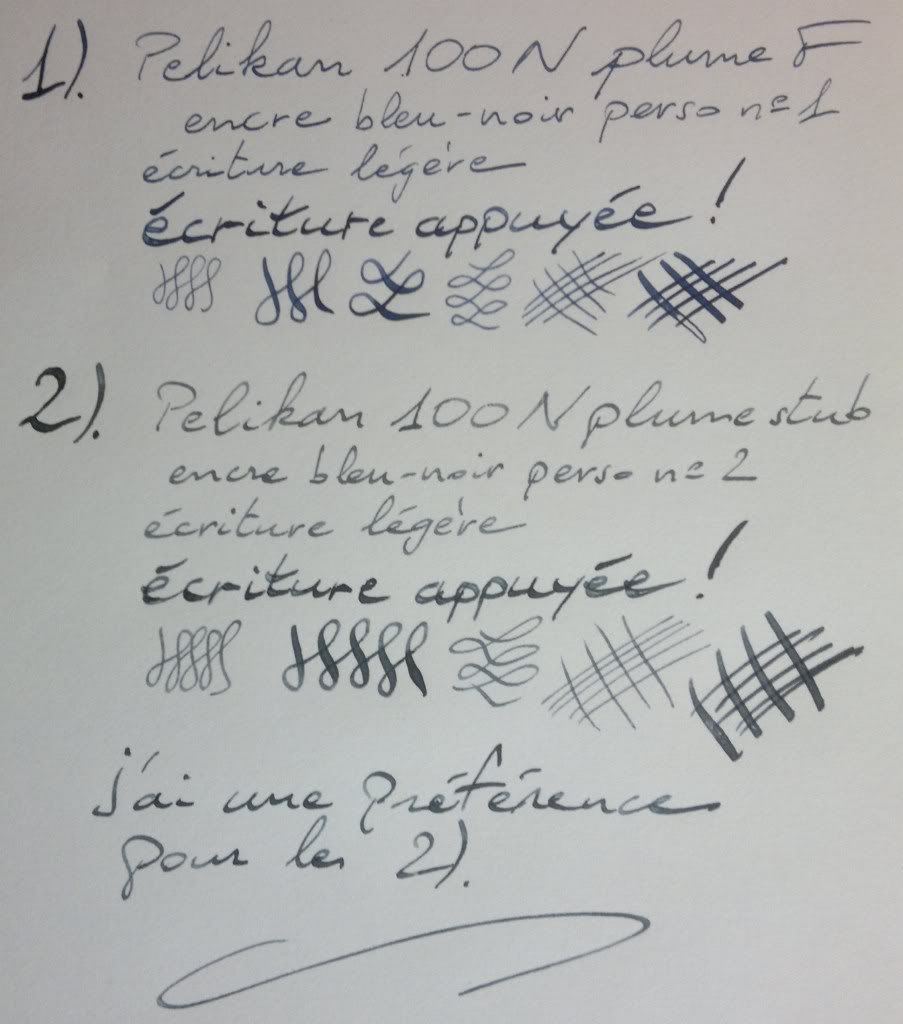 1). Pelikan 100N plume F
encre bleu-noir perso n° 1
écriture légère
écriture appuyée !
2). Pelikan 100N plume stub
encre bleu-noir perso n° 2
écriture légère
écriture appuyée !
j'ai une préférence
pour le 2).